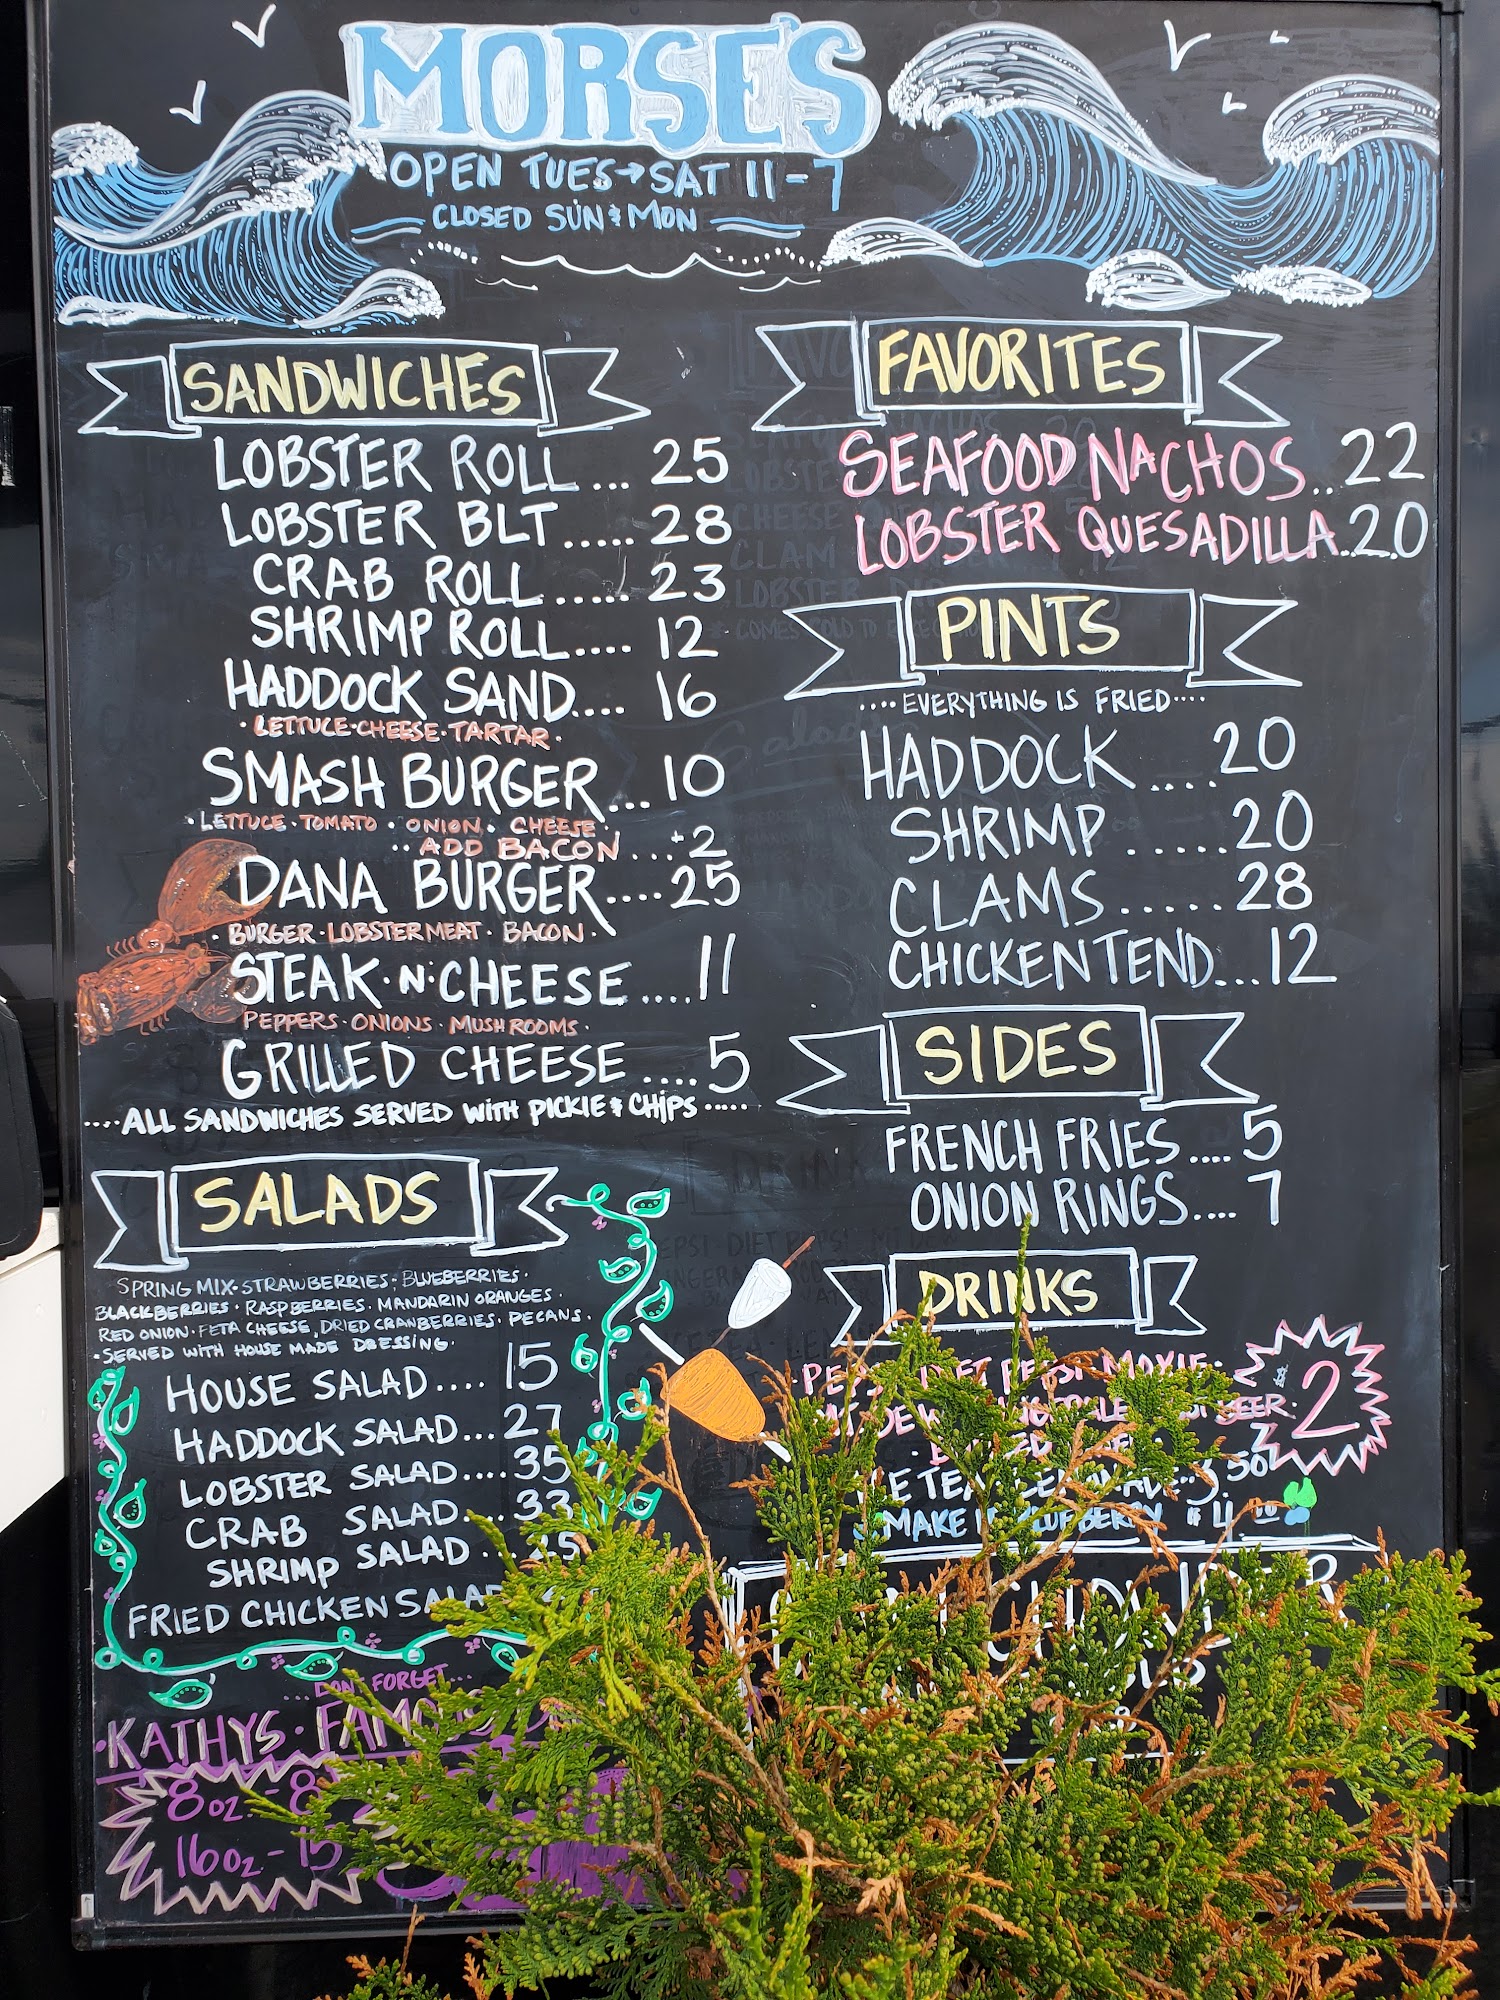 MORSE'S
OPEN TUES→SAT 11-7
CLOSED SUN & MON
SANDWICHES
LOBSTER ROLL ... 25
LOBSTER BLT ..... 28
CRAB ROLL ..... 23
SHRIMP ROLL.... 12
HADDOCK SAND.... 16
· LETTUCE · CHEESE · TARTAR ·
SMASH BURGER... 10
· LETTUCE · TOMATO · ONION · CHEESE ·
·· ADD BACON ... +2
DANA BURGER.... 25
· BURGER · LOBSTER MEAT · BACON ·
STEAK · N · CHEESE .... 11
PEPPERS · ONIONS · MUSHROOMS ·
GRILLED CHEESE .... 5
....ALL SANDWICHES SERVED WITH PICKlE & CHIPS .....
SALADS
SPRING MIX · STRAWBERRIES · BLUEBERRIES ·
BLACKBERRIES · RASPBERRIES · MANDARIN ORANGES ·
RED ONION · FETA CHEESE, DRIED CRANBERRIES · PECANS ·
· SERVED WITH HOUSE MADE DRESSING ·
HOUSE SALAD .... 15
HADDOCK SALAD... 27
LOBSTER SALAD.... 35
CRAB SALAD.... 33
SHRIMP SALAD ..
FRIED CHICKEN
... DON'T FORGET...
· KATHYS · FAMOUS
8oz. - 8
16oz - 15
FAVORITES
SEAFOOD NACHOS... 22
LOBSTER QUESADILLA... 20
PINTS
.... EVERYTHING IS FRIED ....
HADDOCK .... 20
SHRIMP ..... 20
CLAMS ..... 28
CHICKEN TEND... 12
SIDES
FRENCH FRIES .... 5
ONION RINGS.... 7
DRINKS
· PEPSI · DIET PEPSI · MOXIE ·
BEER ·
$2
2
3.50
MAKE IT BLUEBERRY
CHOWDER